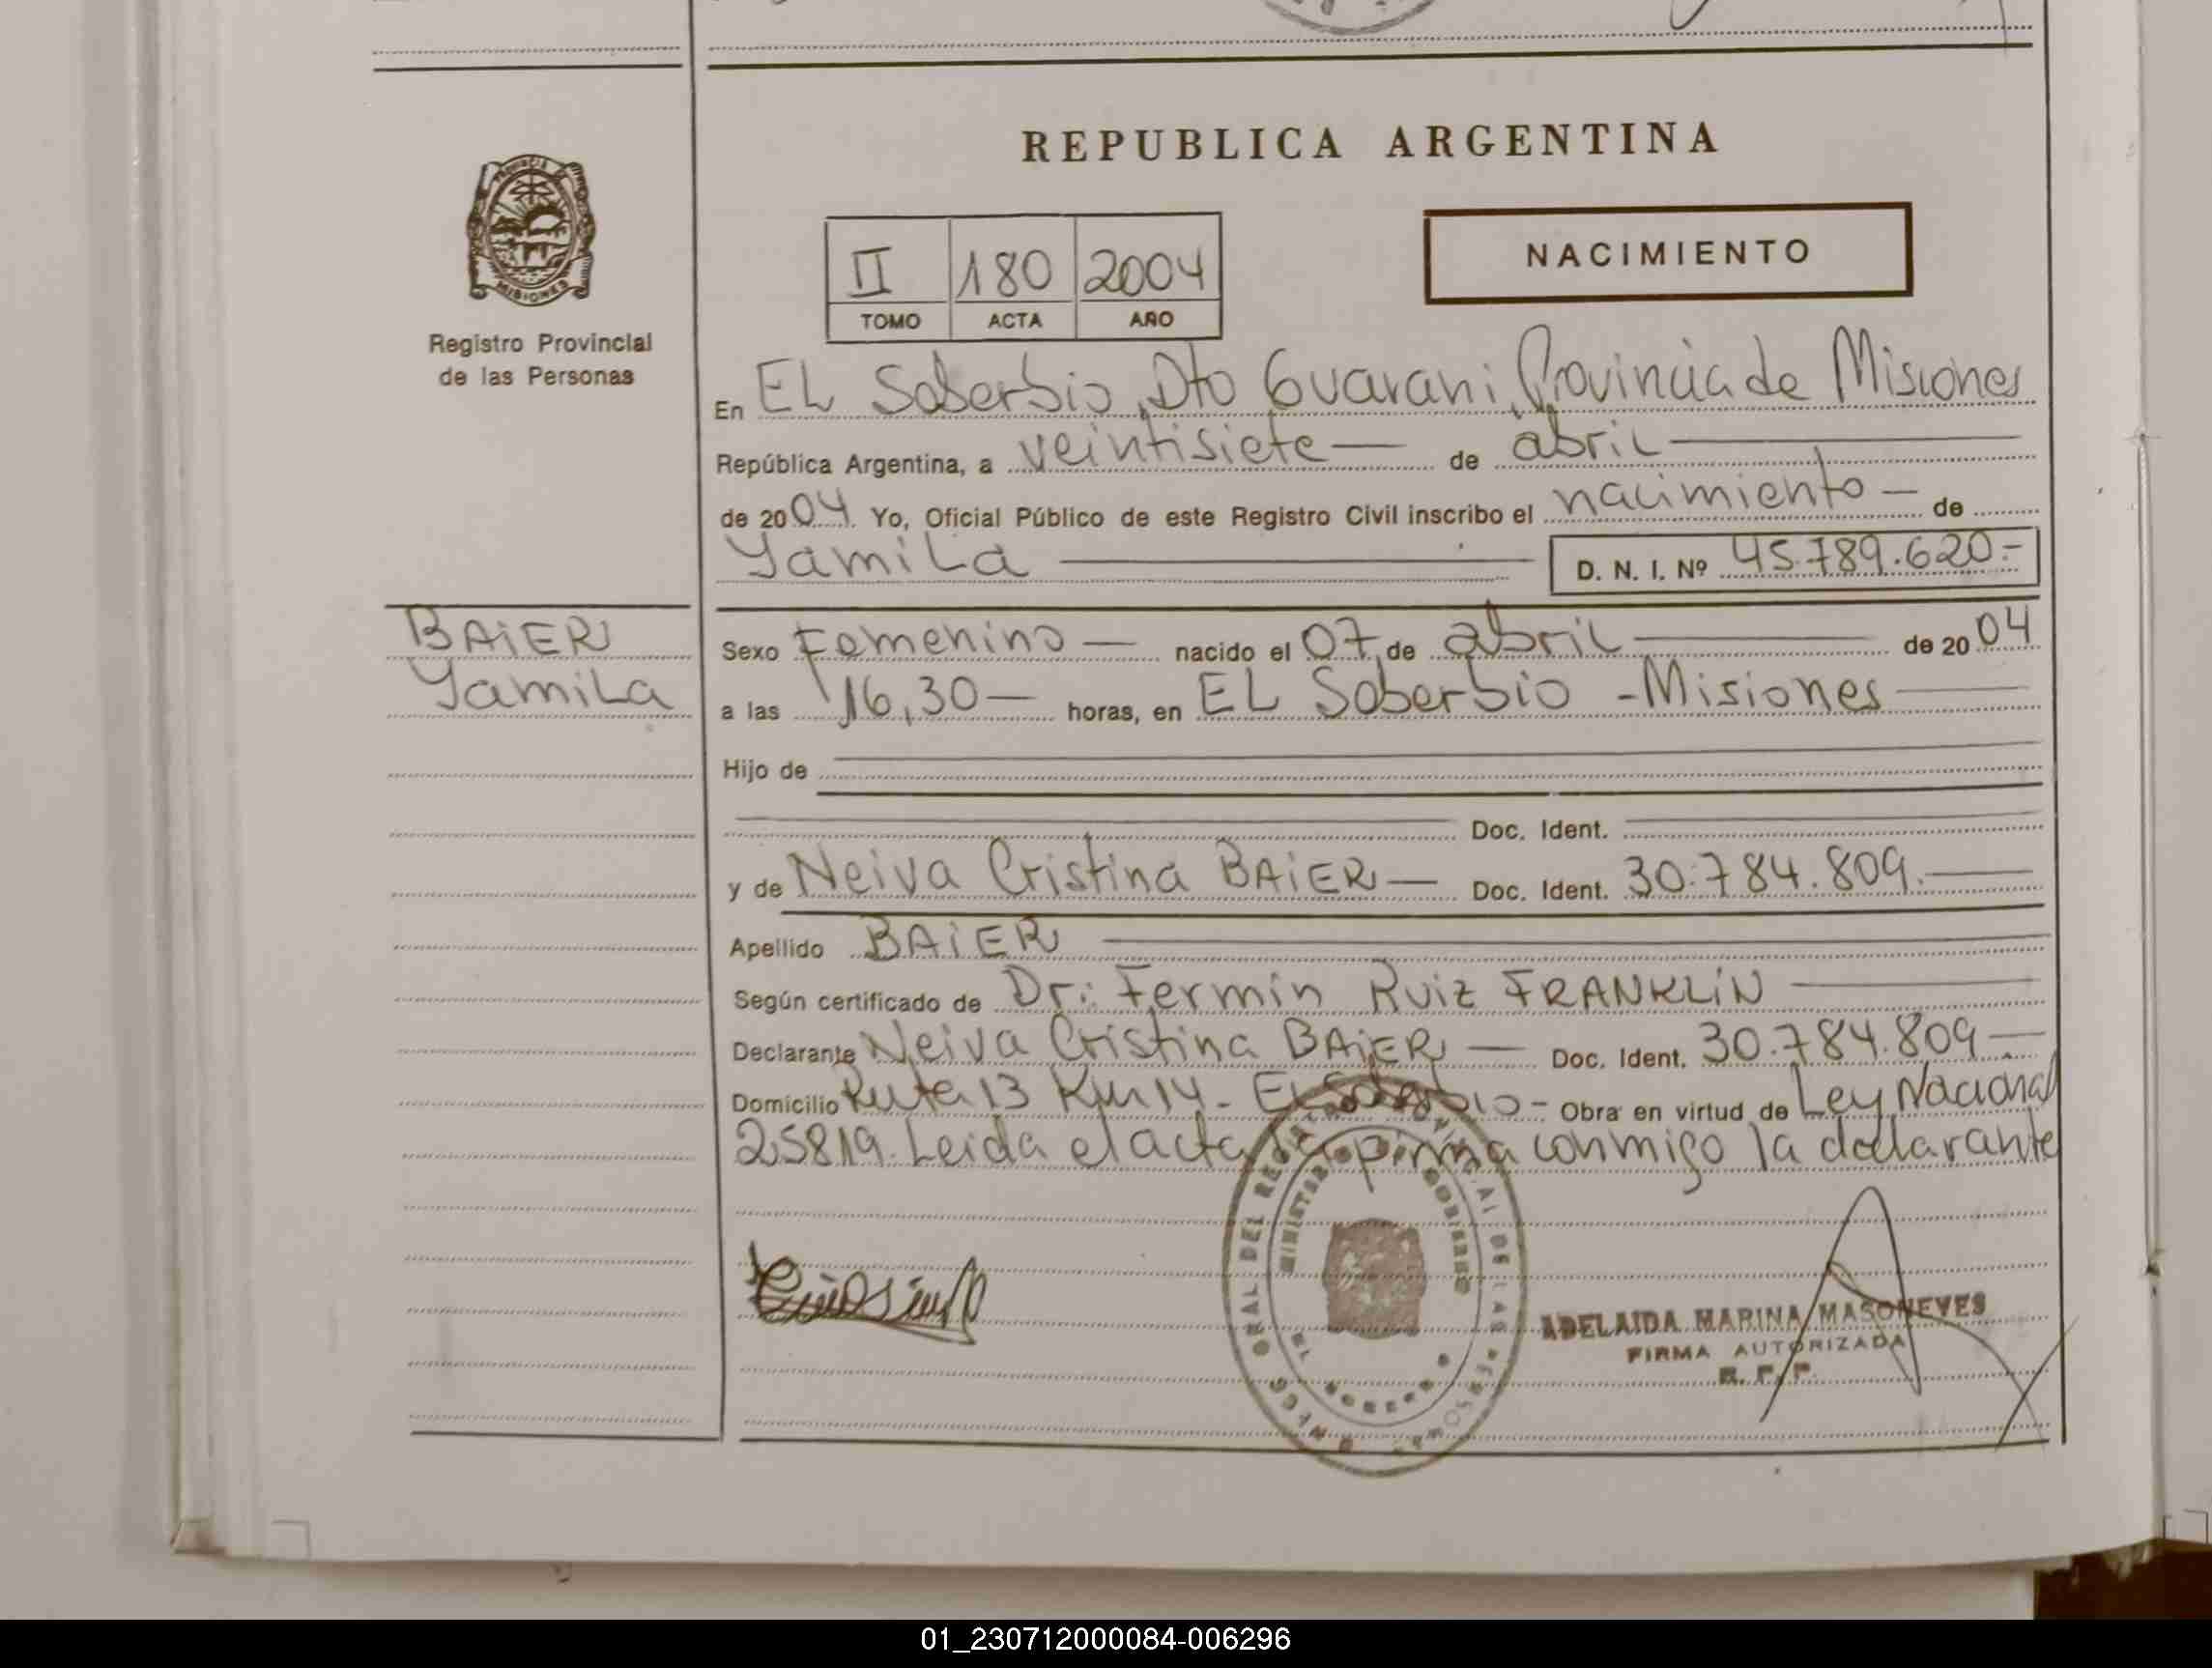 REPUBLICA ARGENTINA
PROVINCIA DE
MISIONES
Registro Provincial
de las Personas
II 180 2004
TOMO ACTA AÑO
NACIMIENTO
En EL Soberbio, Dto Guarani, Provincia de Misiones
República Argentina, a veintisiete — de abril
de 2004 Yo, Oficial Público de este Registro Civil inscribo el nacimiento — de
Yamila D. N. I. Nº 45.789.620.-
BAIER
Yamila
Sexo Femenino — nacido el 07 de abril de 2004
a las 16,30 — horas, en EL Soberbio - Misiones
Hijo de
Doc. Ident.
y de Neiva Cristina BAIER — Doc. Ident. 30.784.809.
Apellido BAIER
Según certificado de Dr: Fermin Ruiz FRANKLIN
Declarante Neiva Cristina BAIER — Doc. Ident. 30.784.809 —
Domicilio Ruta 13 Km 14 - El Soberbio - Obra en virtud de Ley Nacional
25819. Leida el acta la firma conmigo la declarante
ADELAIDA MARINA MASONEVES
FIRMA AUTORIZADA
R. P. P.
01_230712000084-006296